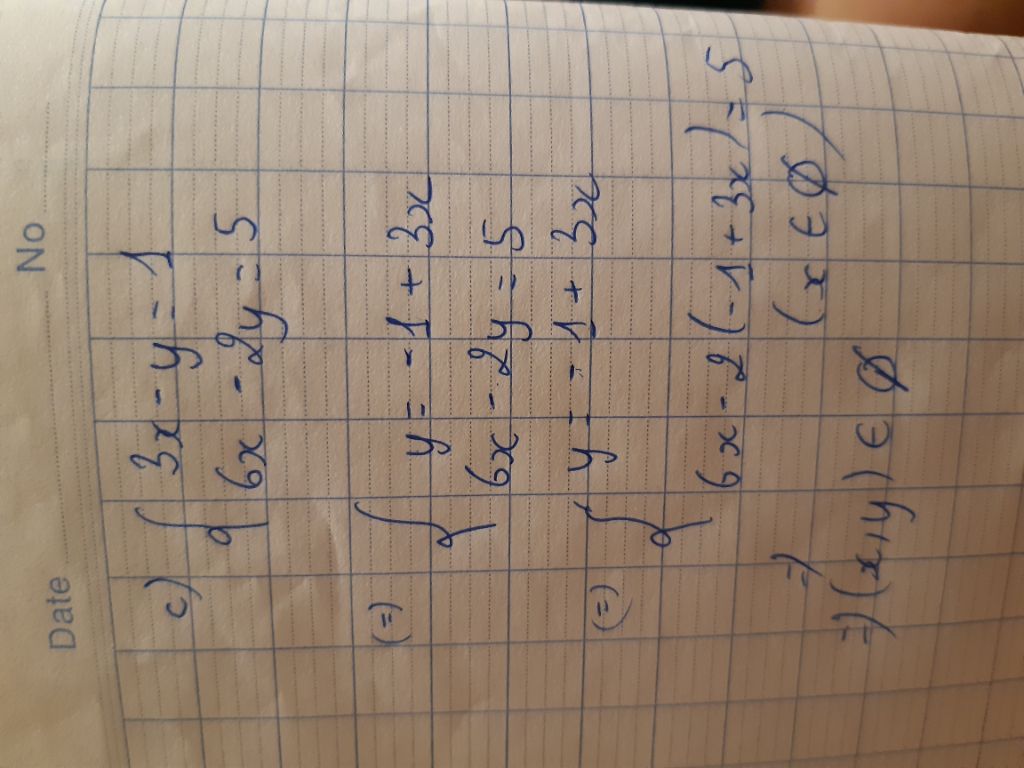 Date No
c) { 3x - y = 1
6x - 2y = 5
(=) { y = -1 + 3x
6x - 2y = 5
(=) { y = -1 + 3x
6x - 2(-1 + 3x) = 5
=) (x ∈ Ø)
=) (x, y) ∈ Ø